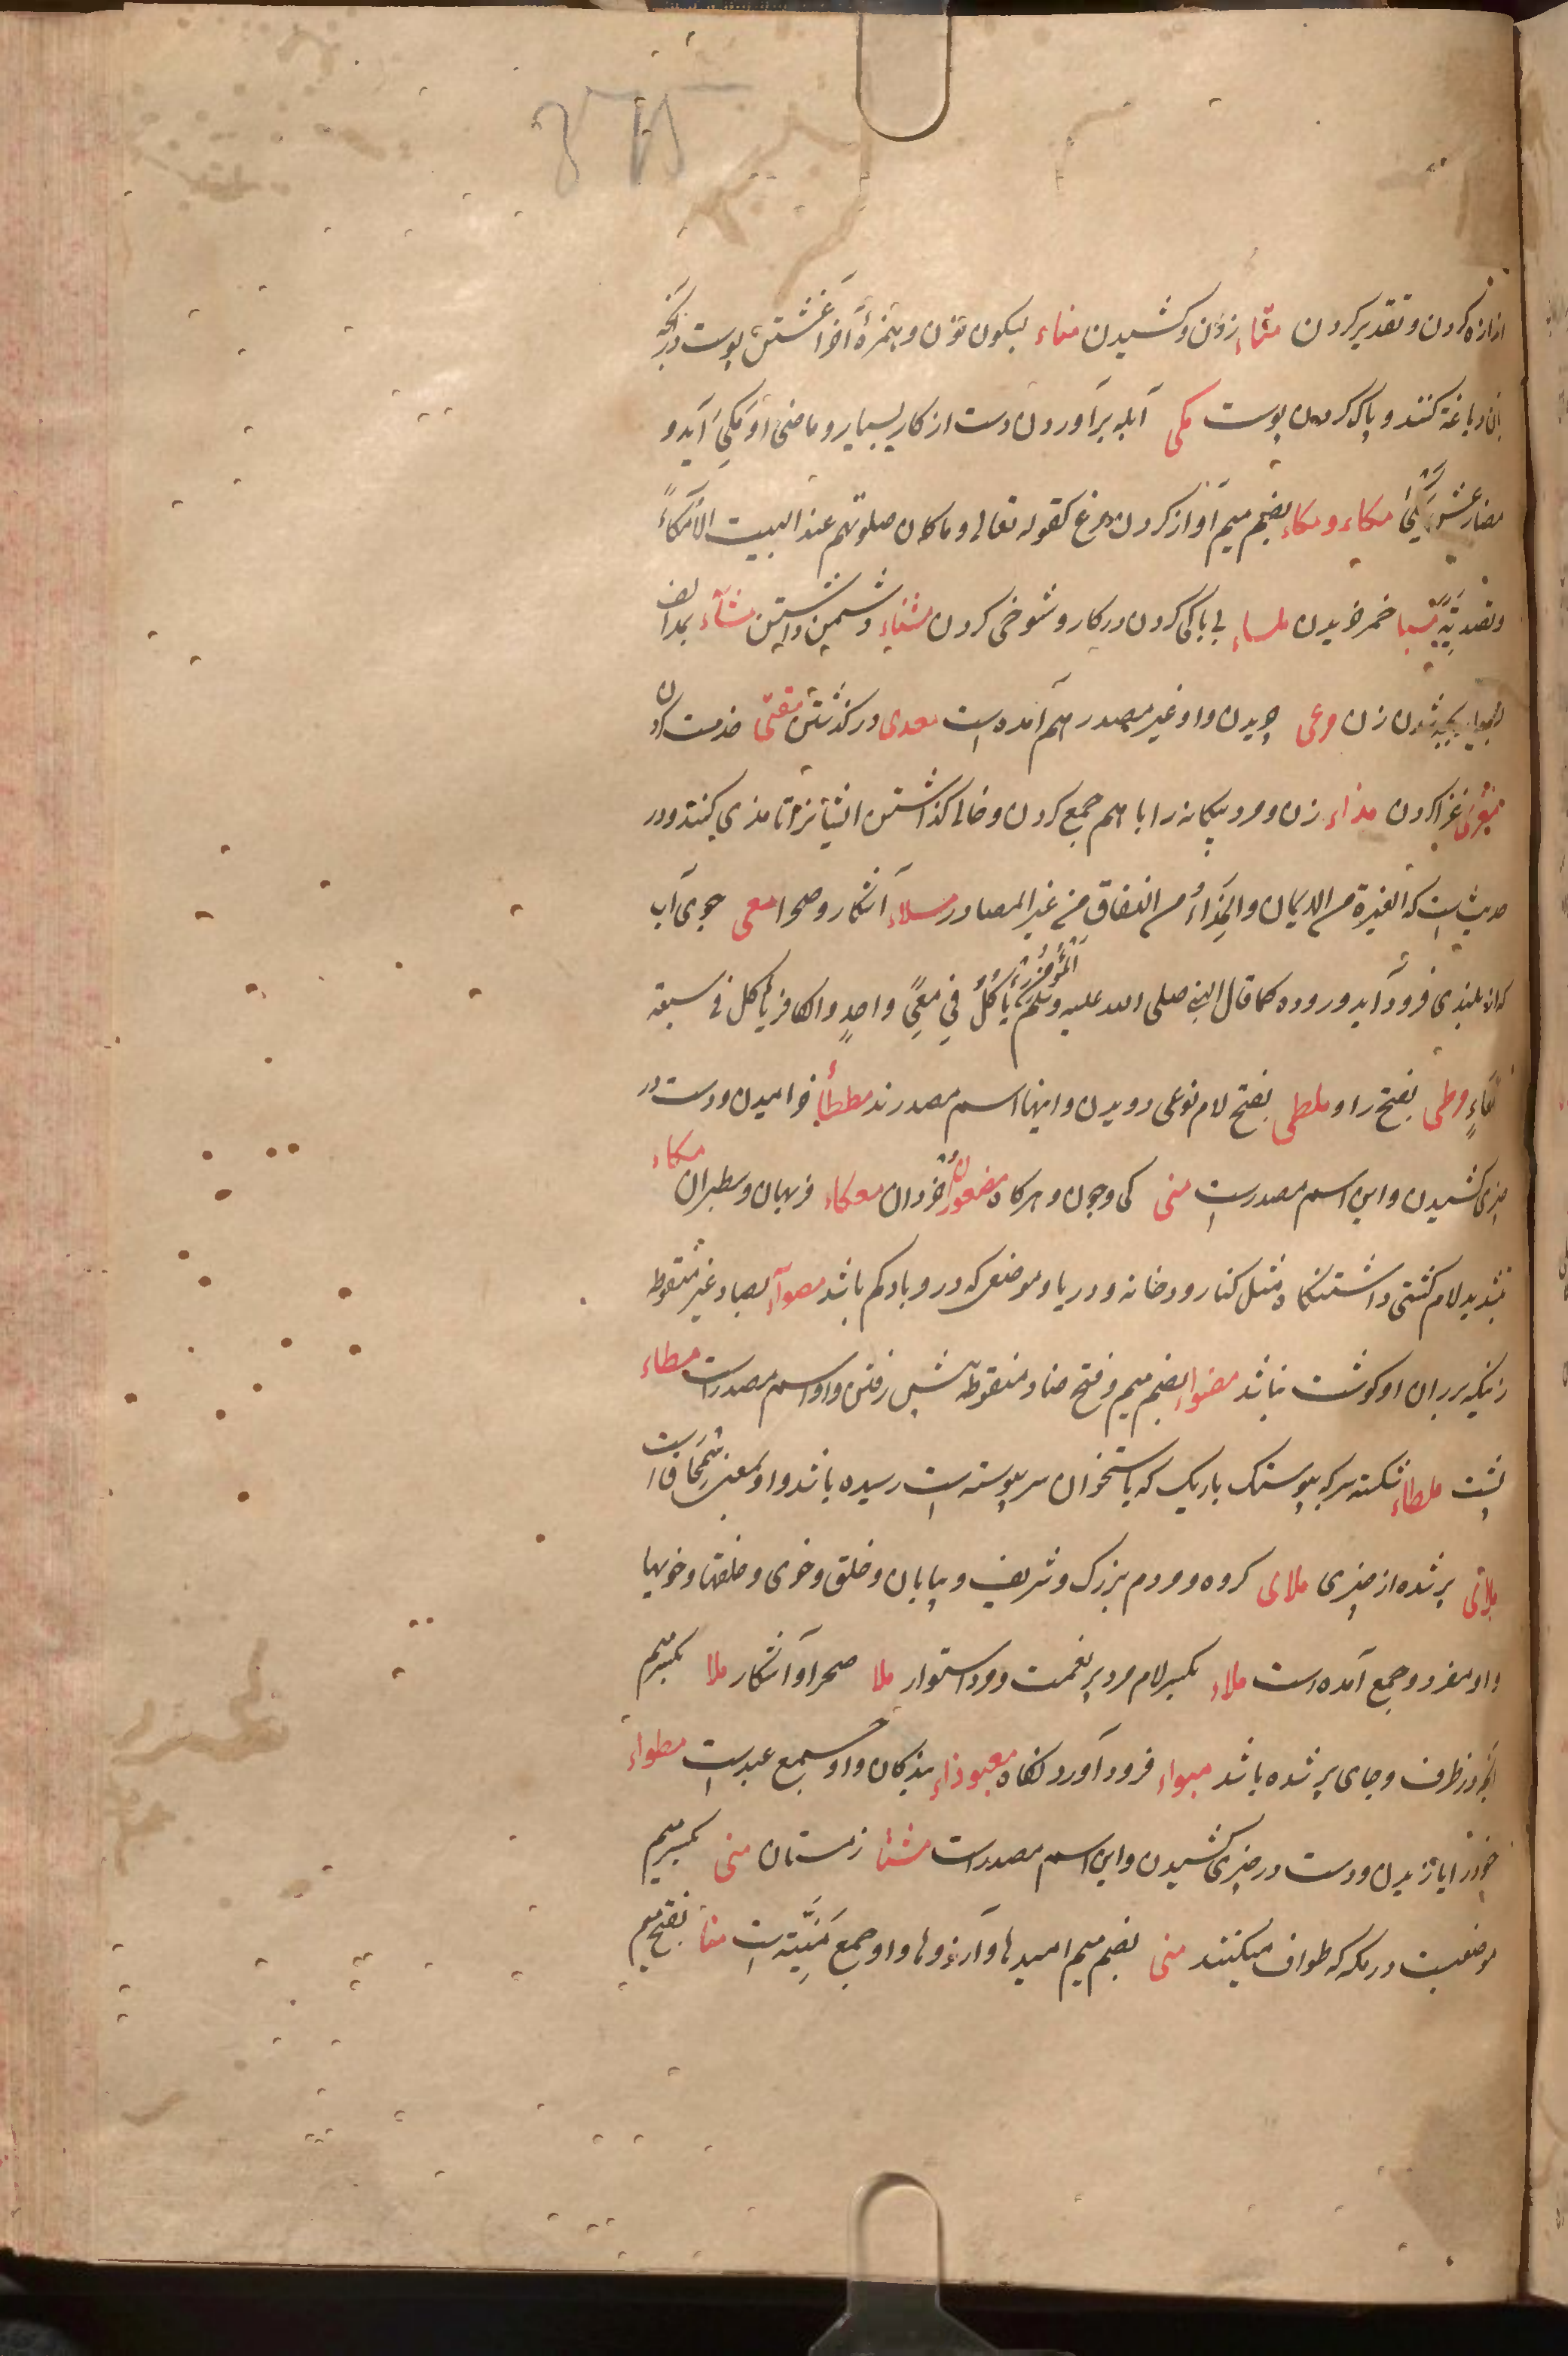 اندازه کردن و تقدیر کردن مثاء زدن و کشیدن مناء بسکون نون و بهمزهٔ آخر آغشتن پوست در آنچه
بان دباغة کنند و پاک کردن پوست مکی آبله برآوردن دست از کار بسیار و ماضی او مَکِیَ آید و
مضارعش یَمْکیٰ مکاء و مکاء بضم میم آواز کردن مرغ کقوله تعالی و ماکان صلوتهم عند البیت الا مُکاءً
و تصدیَةً مسبا خمر خریدن ملساء بی باکی کردن در کار و شوخی کردن مشناء دشمن داشتن مشآء بمد الف
شدن زن مرعی چریدن و او غیر مصدر هم آمده است معدی در گذشتن مقتی خدمت کردن
غزا کردن مذاء زن و مرد بیکانه را با هم جمع کردن و خالی گذاشتن ایشانرا تا مذی کنند و در
حدیث است که الغیرة من الایمان و المِذَاءُ من النفاق من غیر المصادر مسلاء آشکار و صحرا معی جوی آب
که از بلندی فرود آید و روده کما قال النبی صلی الله علیه وسلم المُؤْمِنُ یَأکُلُ فی مِعًی واحدٍ والکافر یأکل فی سبعة
اَمعَاءٍ مرطی بفتح را و ملطی بفتح لام نوعی دویدن و اینها اسم مصدرند مططأ خرامیدن و دست در
چیزی کشیدن و این اسم مصدرست متی کی و چون و هرکاه معکاء فربهان و سطبران مکاء
بتشدید لام کشتی داشتنکاه مثل کنار رودخانه و دریا و موضعی که درو باد کم باشد مصوآء بصاد غیر منقوطه
زنیکه بر ران او کوشت نباشد مضواء بضم میم و فتح ضاد منقوطه پیش رفتن و او اسم مصدرست مطاء
پشت ملطاء شکسته سر که بپوستک باریک که باستخوان سر پیوسته است رسیده باشد و او بمعنی سمحاق است
ملآتی پر شده از چیزی ملای کروه و مردم بزرک و شریف و بیابان و خلق و خوی و خلقها و خویها
و او مفرد و جمع آمده است ملاء بکسر لام مرد پر نعمت و مرد استوار ملا صحرا و آشکار ملا بکسر میم
آنچه در ظرف و جای پر شده باشد مبواء فرود آورد نکاه معبوداء بندکان و او جمع عبدست مطواء
خود را یازیدن و دست در چیزی کشیدن و این اسم مصدرست مشتا زمستان منی بکسر میم
موضعیست در مکه که طواف میکنند منی بضم میم امیدها و آرزوها و او جمع مُنْیَّتة است منا بفتح میم